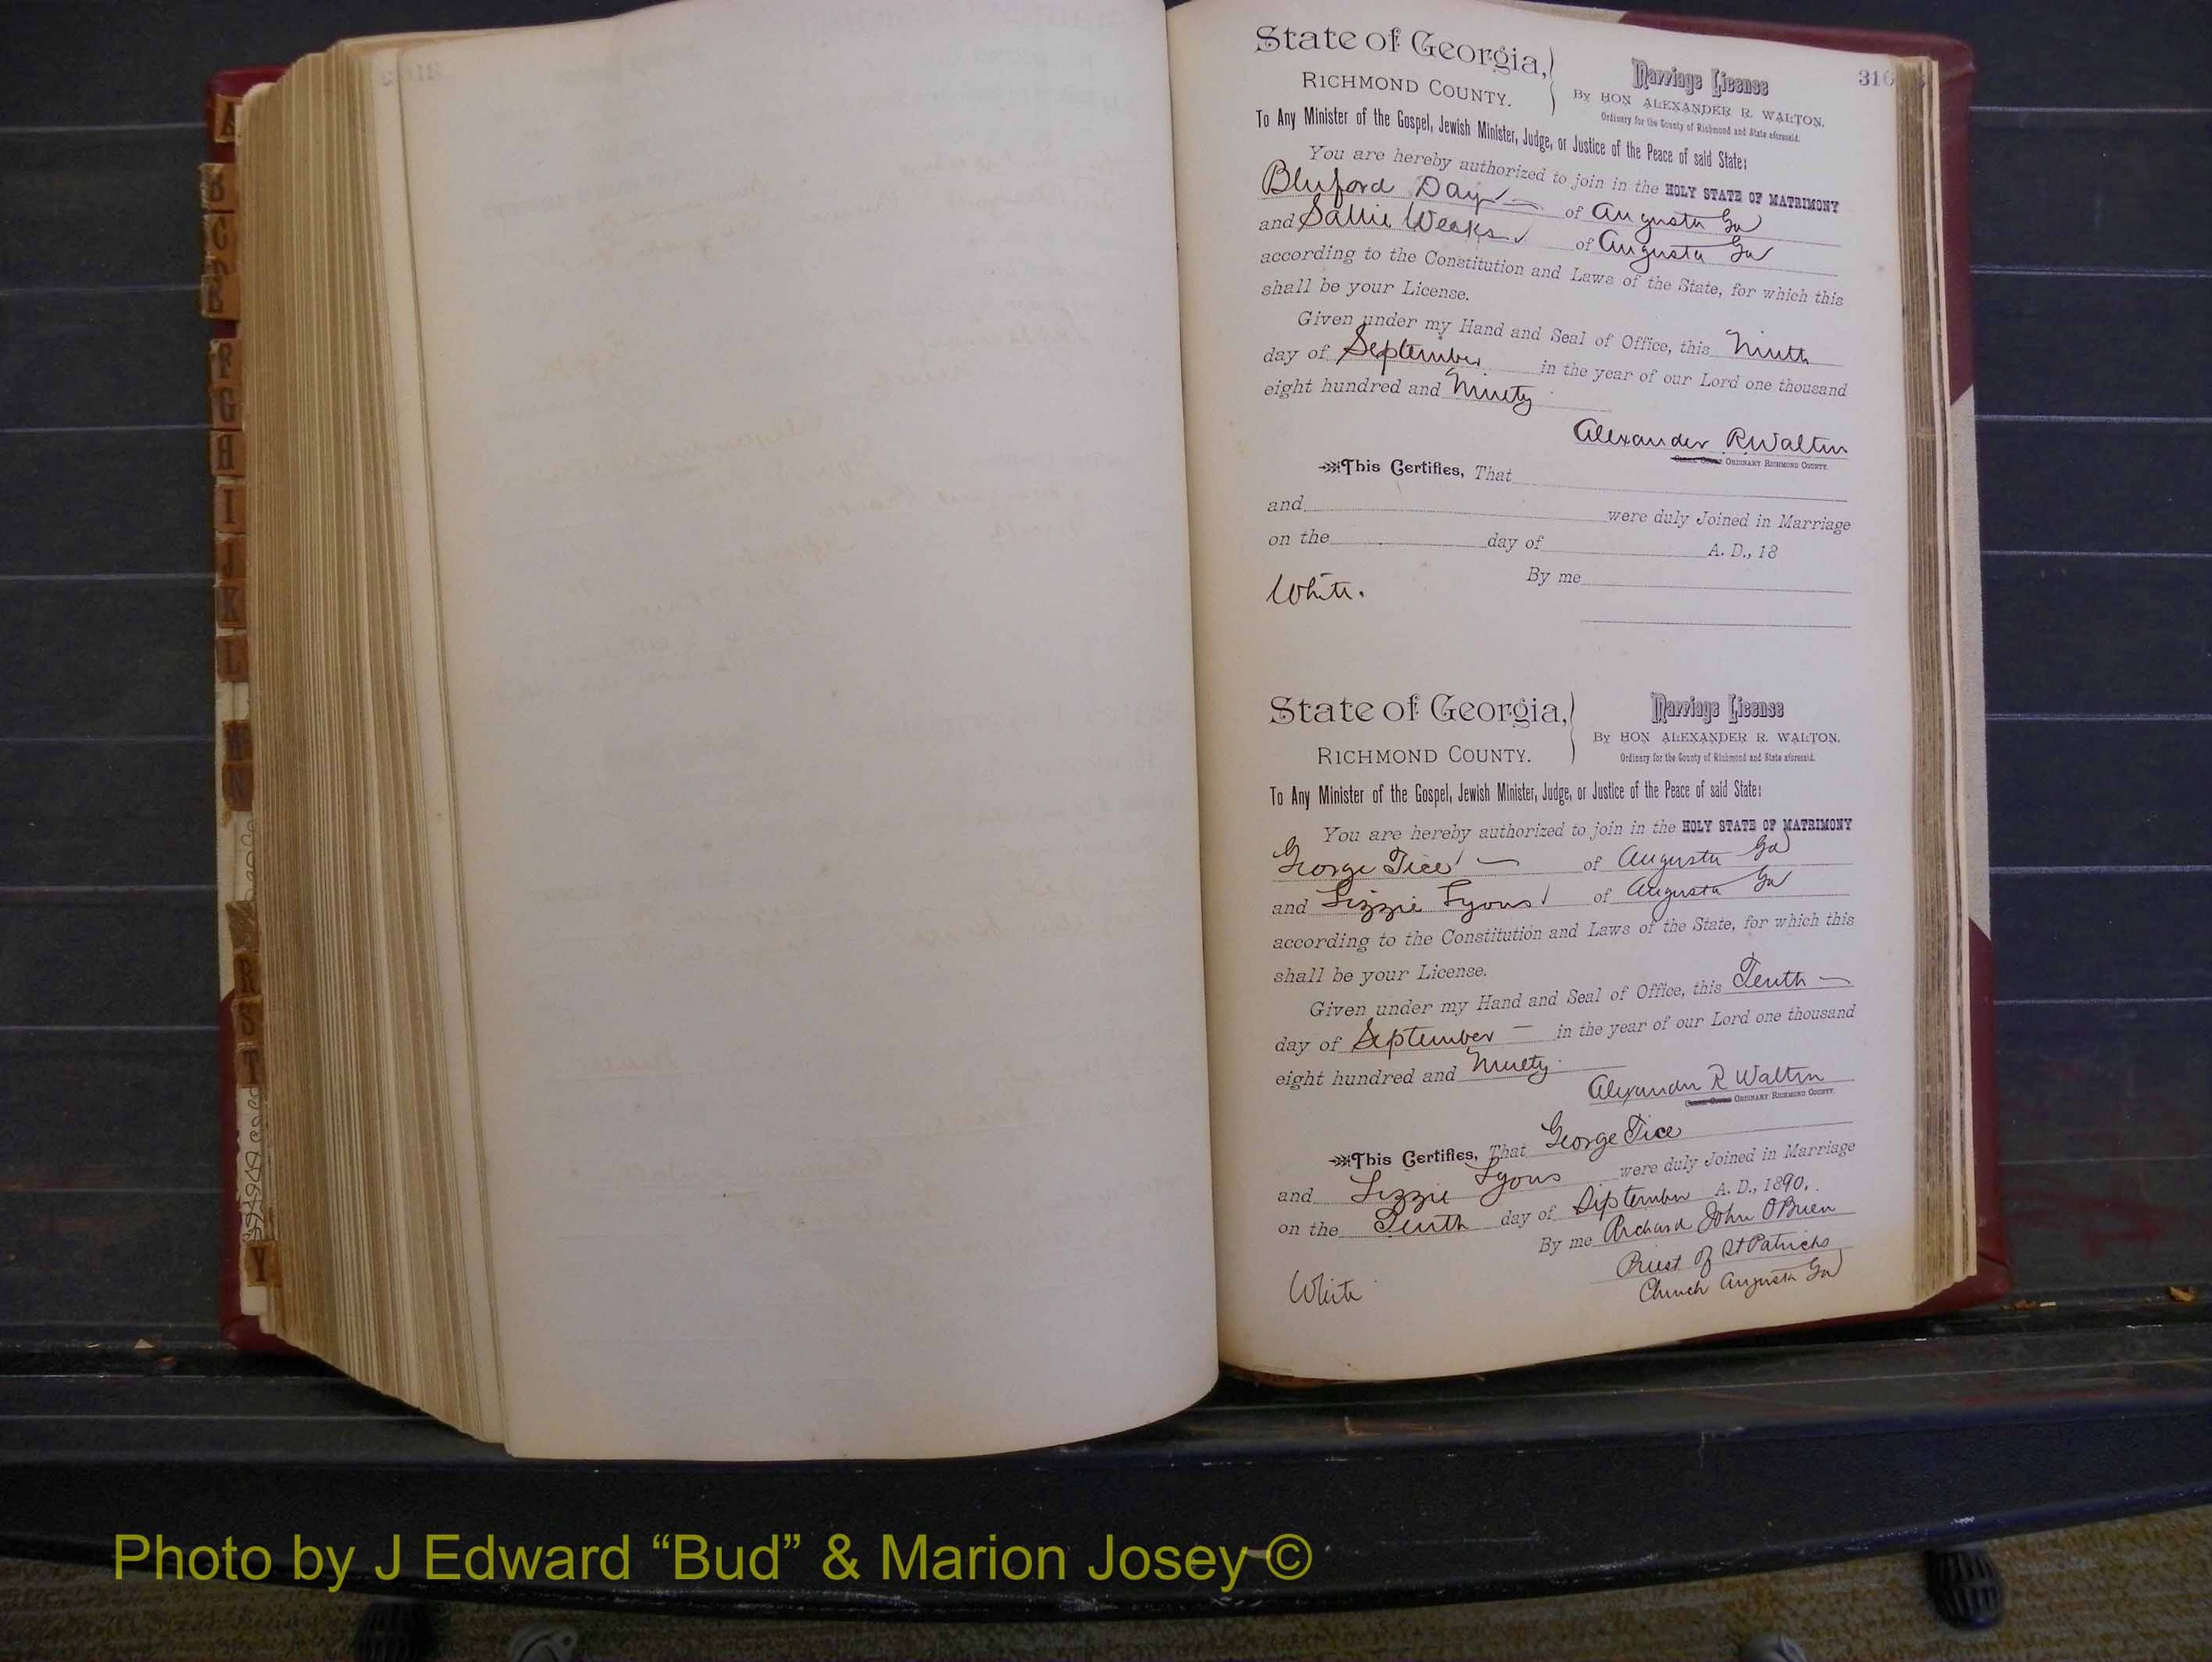 State of Georgia,
RICHMOND COUNTY.
Marriage License
By HON ALEXANDER R. WALTON,
Ordinary for the County of Richmond and State aforesaid.
316
To Any Minister of the Gospel, Jewish Minister, Judge, or Justice of the Peace of said State:
You are hereby authorized to join in the HOLY STATE OF MATRIMONY
Bluford Day of Augusta Ga
and Sallie Weeks of Augusta Ga
according to the Constitution and Laws of the State, for which this
shall be your License.
Given under my Hand and Seal of Office, this Ninth
day of September in the year of our Lord one thousand
eight hundred and Ninety
Alexander R Walton
ORDINARY RICHMOND COUNTY.
This Certifies, That
and were duly Joined in Marriage
on the day of A. D., 18
By me
White.
State of Georgia,
RICHMOND COUNTY.
Marriage License
By HON ALEXANDER R. WALTON,
Ordinary for the County of Richmond and State aforesaid.
To Any Minister of the Gospel, Jewish Minister, Judge, or Justice of the Peace of said State:
You are hereby authorized to join in the HOLY STATE OF MATRIMONY
George Tice of Augusta Ga
and Lizzie Lyons of Augusta Ga
according to the Constitution and Laws of the State, for which this
shall be your License.
Given under my Hand and Seal of Office, this Tenth
day of September in the year of our Lord one thousand
eight hundred and Ninety
Alexander R Walton
ORDINARY RICHMOND COUNTY.
This Certifies, That George Tice
and Lizzie Lyons were duly Joined in Marriage
on the Tenth day of September A. D., 1890.
By me Richard John O'Brien
Priest of St Patricks
Church Augusta Ga
White
A
B
C
D
E
F
G
H
I
J
K
L
M
N
R
S
T
Y
Photo by J Edward “Bud” & Marion Josey ©